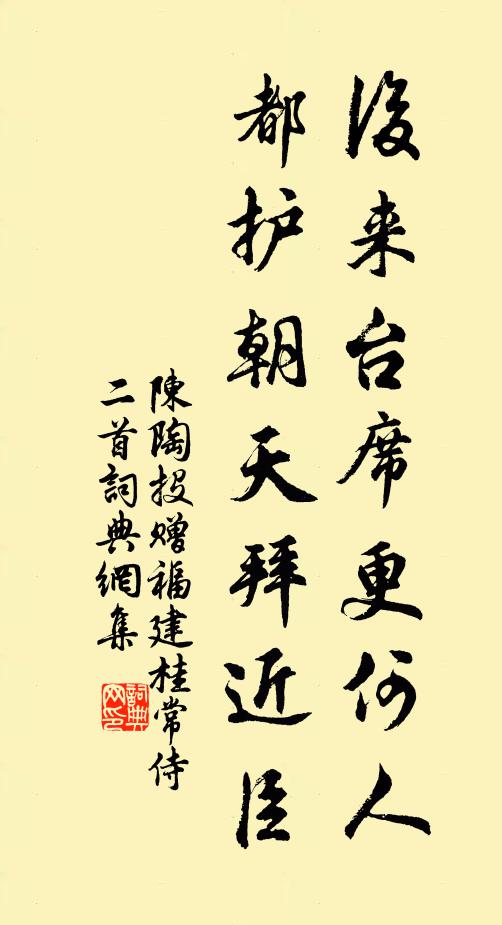 後来台席更何人
都护朝天拜近臣
陳陶投赠福建桂常侍
二首詞典網集
詞典网印